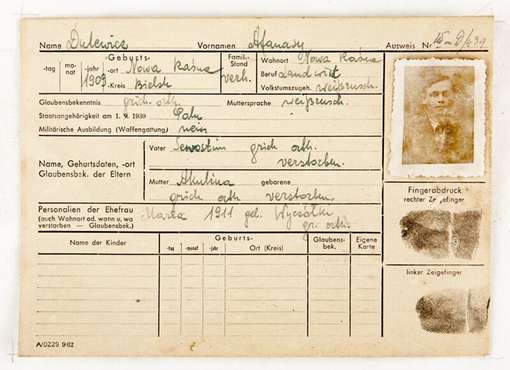 Name Dulewicz Vornamen Atanazy Ausweis Nr
-tag mo-nat -jahr 1909 Geburts- -ort Nowa Kaśna -Kreis Bielsk Famil.-Stand verh. Wohnort Nowa Kaśna
Beruf Landwirt
Volkstumszugeh. weißrusch.
Glaubensbekenntnis grich. orth. Muttersprache weißrusch.
Staatsangehörigkeit am 1. 9. 1939 Poln.
Militärische Ausbildung (Waffengattung) nein
Name, Gehurtsdaten, -ort
Glaubensbek. der Eltern
Vater grich orth.
verstorben.
Mutter Akulina geborene
grich orth verstorben.
Personalien der Ehefrau
(auch Wohnort od. wann u. wo
verstorben — Glaubensbek.)
1911 geb.
gr. orth.
Name der Kinder Geburts- Glaubens-bek. Eigene Karte
-tag -monat -jahr Ort (Kreis)
Fingerabdruck
rechter Zeigefinger
linker Zeigefinger
A/0229. 9/62